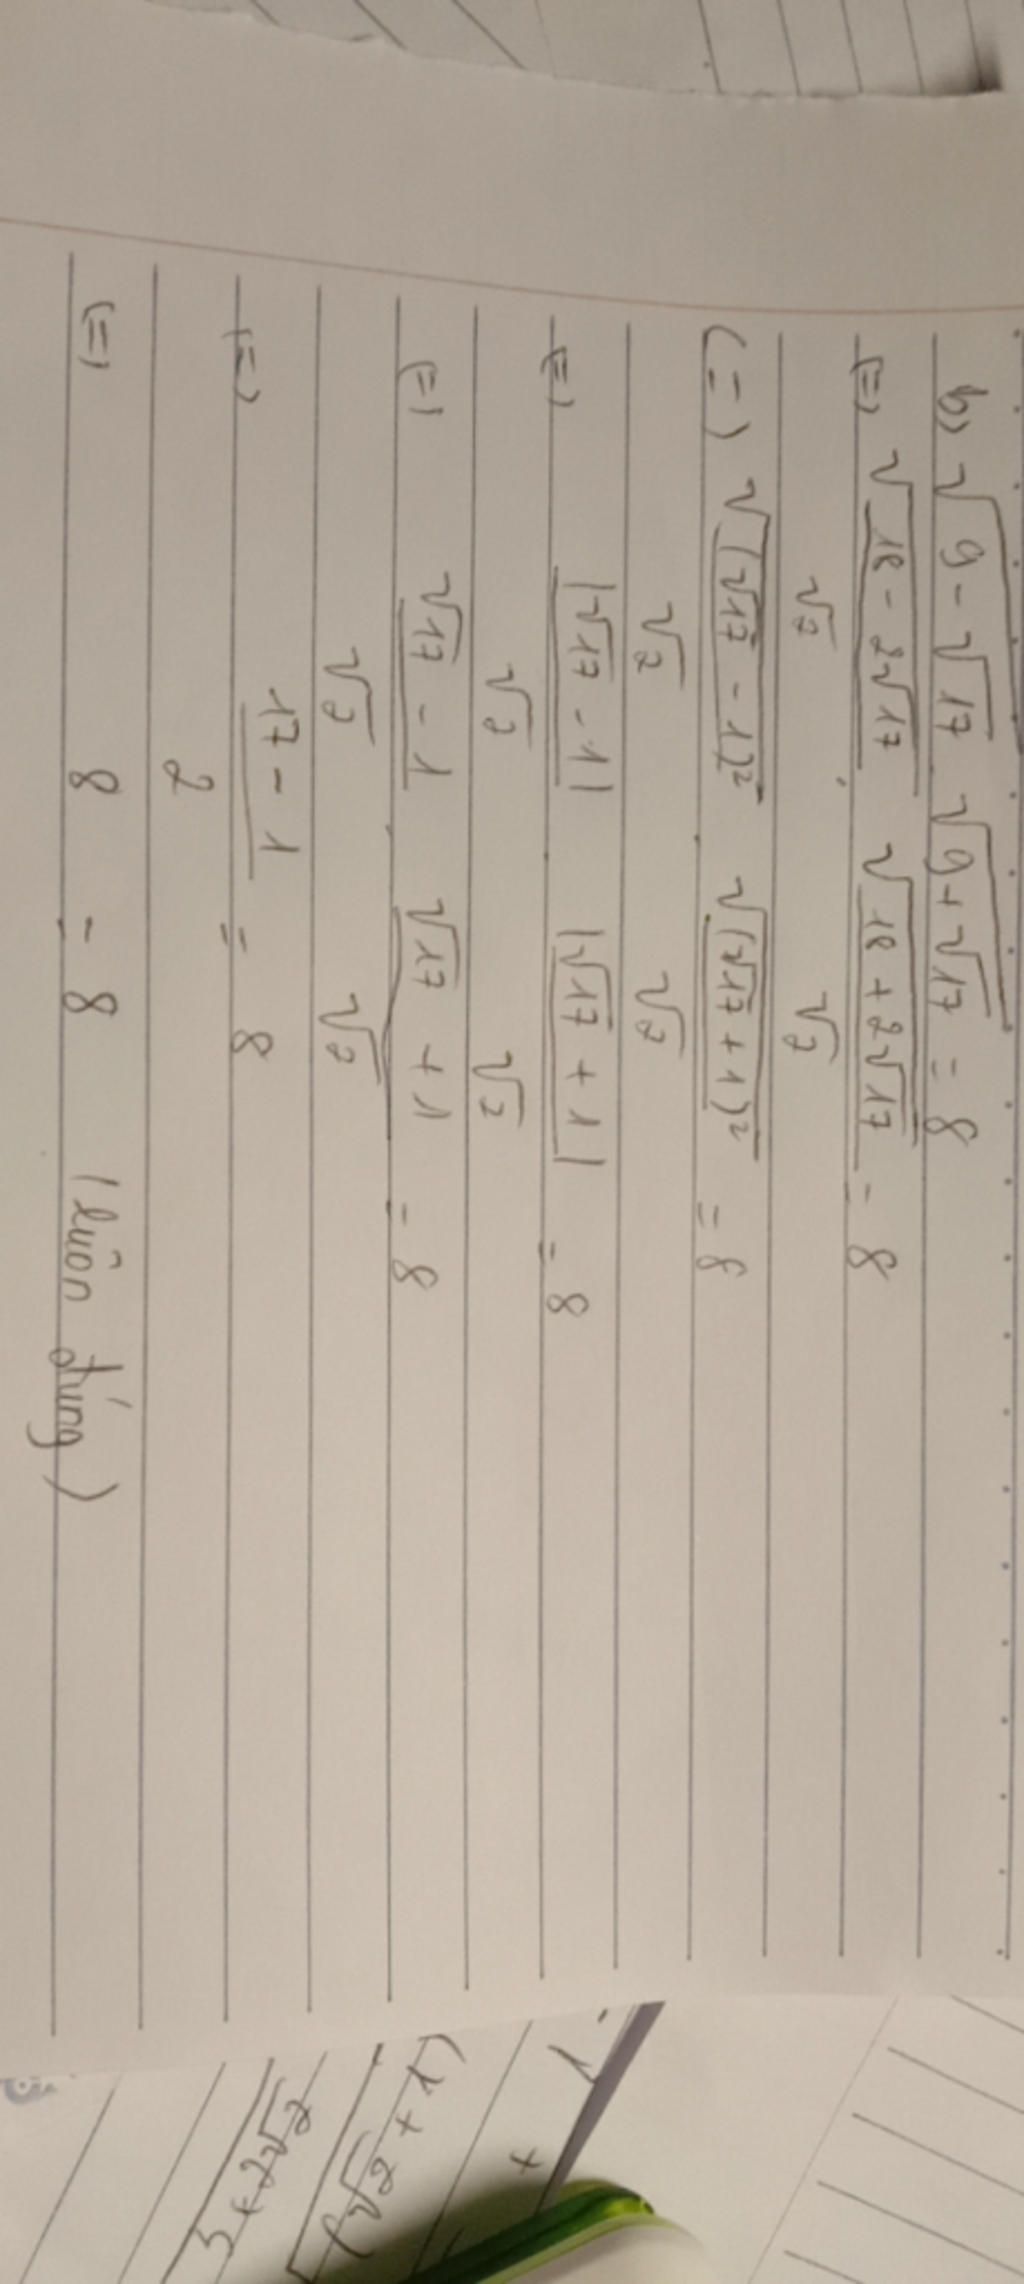 b) √(9 - √17) √(9 + √17) = 8
(=) √(18 - 2√17) / √2 . √(18 + 2√17) / √2 = 8
(=) √((√17 - 1)²) / √2 . √((√17 + 1)²) / √2 = 8
(=) |√17 - 1| / √2 . |√17 + 1| / √2 = 8
(=) (√17 - 1) / √2 . (√17 + 1) / √2 = 8
(=) (17 - 1) / 2 = 8
(=) 8 = 8 (luôn đúng)
(√2 + 1)
3 + 2√2